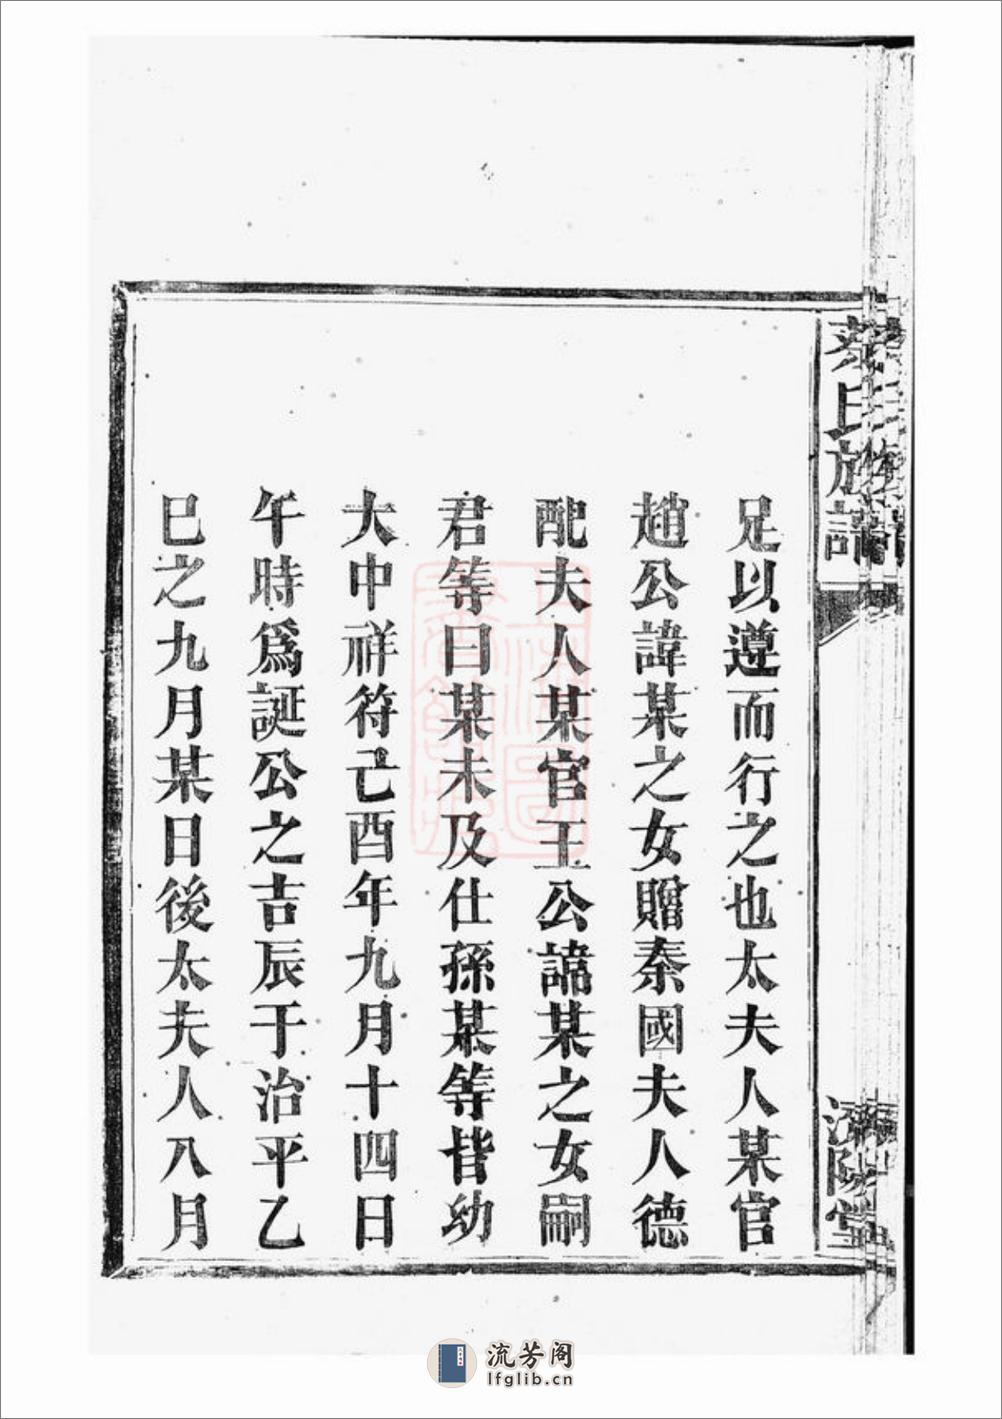 蔡氏族譜
濟陽堂
足以遵而行之也太夫人某官
趙公諱某之女贈秦國夫人德
配夫人某官王公諱某之女嗣
君等曰某未及仕孫某等皆幼
大中祥符己酉年九月十四日
午時爲誕公之吉辰于治平乙
巳之九月某日後太夫人八月
流芳阁
lfglib.cn